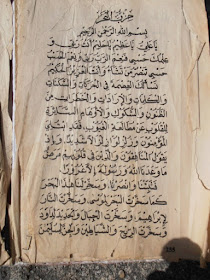 حزب البحر
بسم الله الرحمن الرحيم
يا علي يا عظيم يا حليم يا عليم أنت ربي و
علمك حسبي فنعم الرب ربي ونعم الحسب
حسبي تنصر من تشاء وأنت العزيز الحكيم
نسألك العصمة في الحركات والسكنات
والكلمات والإرادات والخطرات من
الظنون والشكوك والأوهام الساترة
للقلوب عن مطالعة الغيوب فقد ابتلي
المؤمنون وزلزلوا زلزالا شديدا وإذ
يقول المنافقون والذين في قلوبهم مرض
ما وعدنا الله ورسوله إلا غرورا
فثبتنا وانصرنا وسخر لنا هذا البحر
كما سخرت البحر لموسى وسخرت النار
لإبراهيم وسخرت الجبال والحديد لداود
وسخرت الريح والشياطين والجن لسليمن